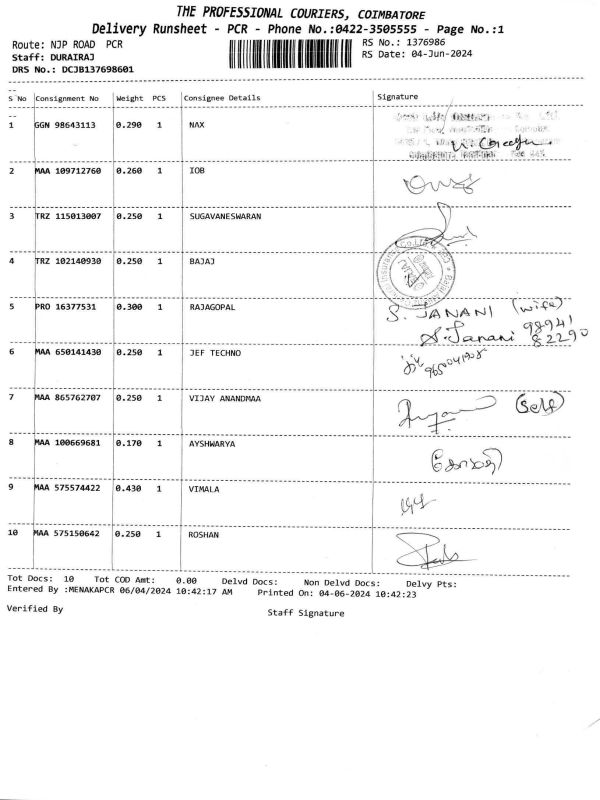 THE PROFESSIONAL COURIERS, COIMBATORE
Delivery Runsheet - PCR - Phone No.:0422-3505555 - Page No.:1
Route: NJP ROAD PCR
RS No.: 1376986
Staff: DURAIRAJ
RS Date: 04-Jun-2024
DRS No.: DCJB137698601
S No Consignment No Weight PCS Consignee Details Signature
1 GGN 98643113 0.290 1 NAX
2 MAA 109712760 0.260 1 IOB
3 TRZ 115013007 0.250 1 SUGAVANESWARAN
4 TRZ 102140930 0.250 1 BAJAJ
5 PRO 16377531 0.300 1 RAJAGOPAL S. JANANI (wife)
S. Janani 98941 82290
6 MAA 650141430 0.250 1 JEF TECHNO
7 MAA 865762707 0.250 1 VIJAY ANANDMAA (Self)
8 MAA 100669681 0.170 1 AYSHWARYA
9 MAA 575574422 0.430 1 VIMALA
10 MAA 575150642 0.250 1 ROSHAN
Tot Docs: 10 Tot COD Amt: 0.00 Delvd Docs: Non Delvd Docs: Delvy Pts:
Entered By :MENAKAPCR 06/04/2024 10:42:17 AM Printed On: 04-06-2024 10:42:23
Verified By Staff Signature